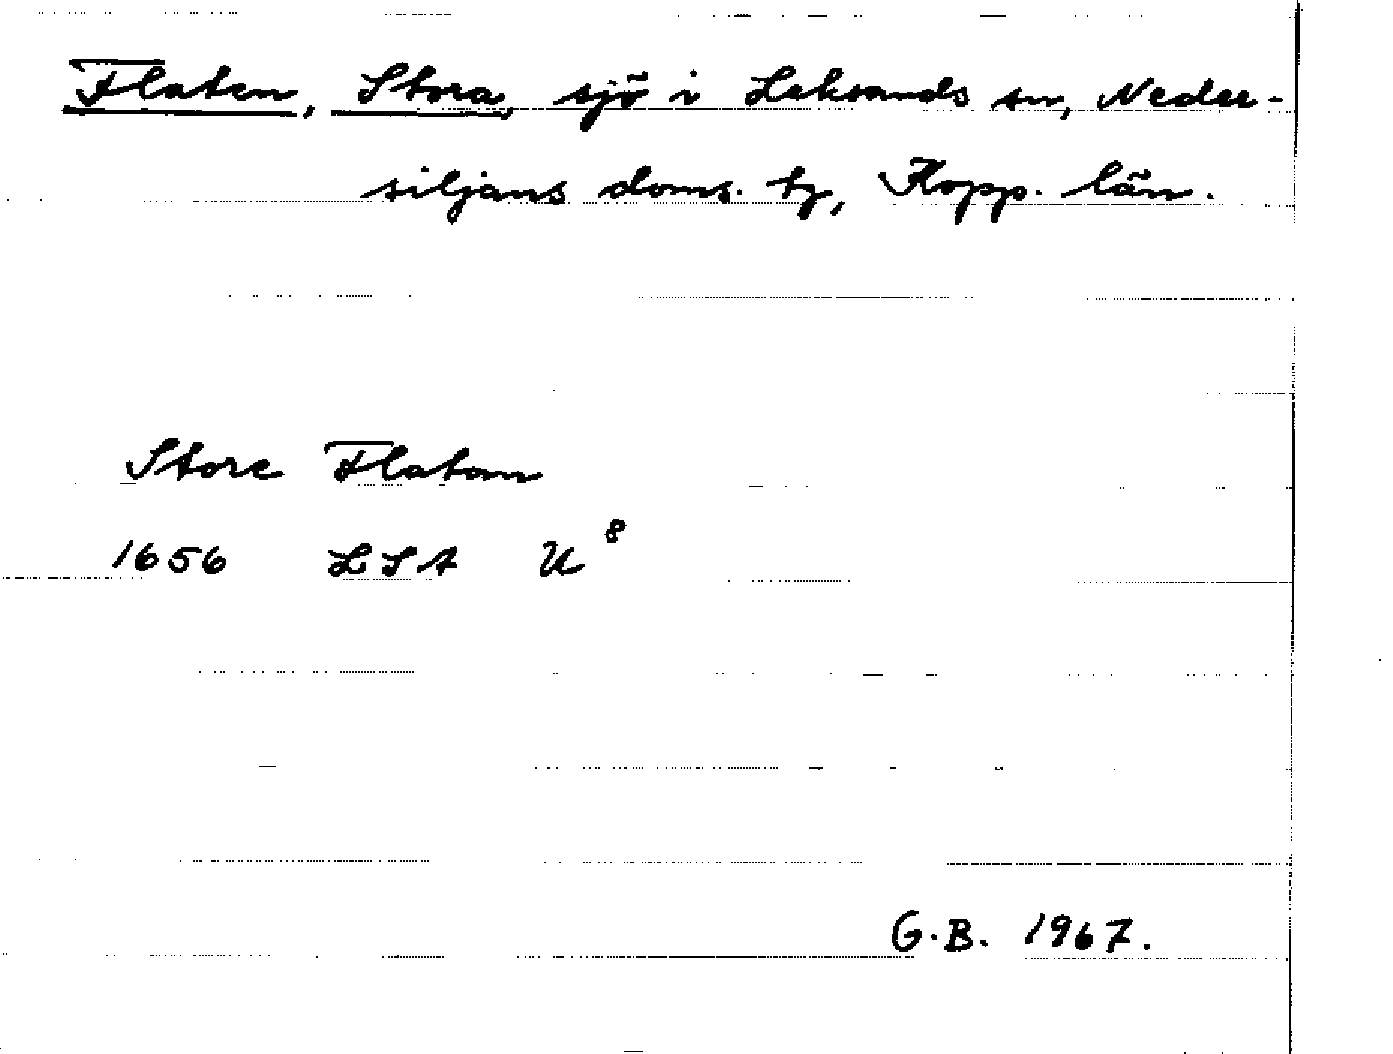 Flaten, Stora, sjö i Leksands sn, Neder-
siljans doms. tg, Kopp. län.
Store Flatom
1656 LSA U⁸
G.B. 1967.